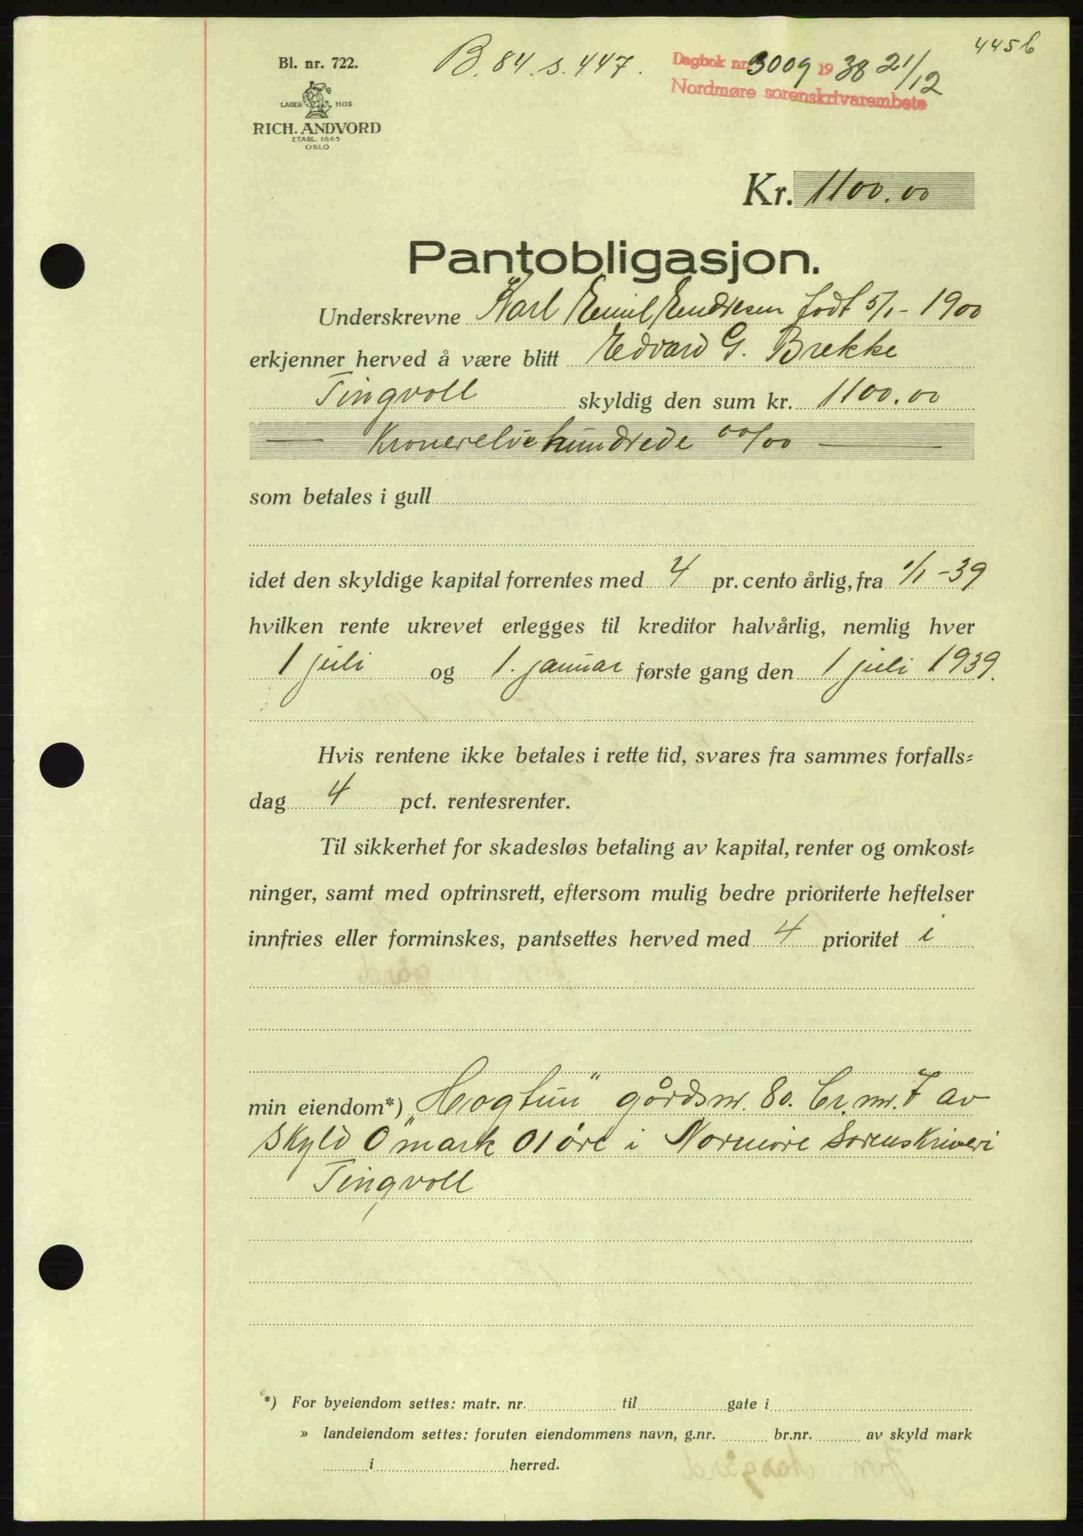 4456
Bl. nr. 722.
B. 84. s. 447.
Dagbok nr. 3009 1938 21/12
Nordmøre sorenskrivarembete
LAGER HOS
RICH. ANDVORD
ETABL. 1865
OSLO
Kr. 1100.00
Pantobligasjon.
Underskrevne Karl Emil Endresen født 5/1-1900
erkjenner herved å være blitt Edvard G. Brekke
Tingvoll skyldig den sum kr. 1100.00
— Kronerelvehundrede 00/00 —
som betales i gull
idet den skyldige kapital forrentes med 4 pr. cento årlig, fra 1/1-39
hvilken rente ukrevet erlegges til kreditor halvårlig, nemlig hver
1 juli og 1. januar første gang den 1 juli 1939.
Hvis rentene ikke betales i rette tid, svares fra sammes forfalls=
dag 4 pct. rentesrenter.
Til sikkerhet for skadesløs betaling av kapital, renter og omkost=
ninger, samt med optrinsrett, eftersom mulig bedre prioriterte heftelser
innfries eller forminskes, pantsettes herved med 4 prioritet i
min eiendom*) „Haogtun" gårdsnr. 80. br. nr. 7 av
skyld 0 mark 01 øre i Normøre Sorenskriveri
Tingvoll
*) For byeiendom settes: matr. nr. til gate i
» landeiendom settes: foruten eiendommens navn, g.nr. br.nr. av skyld mark
i herred.